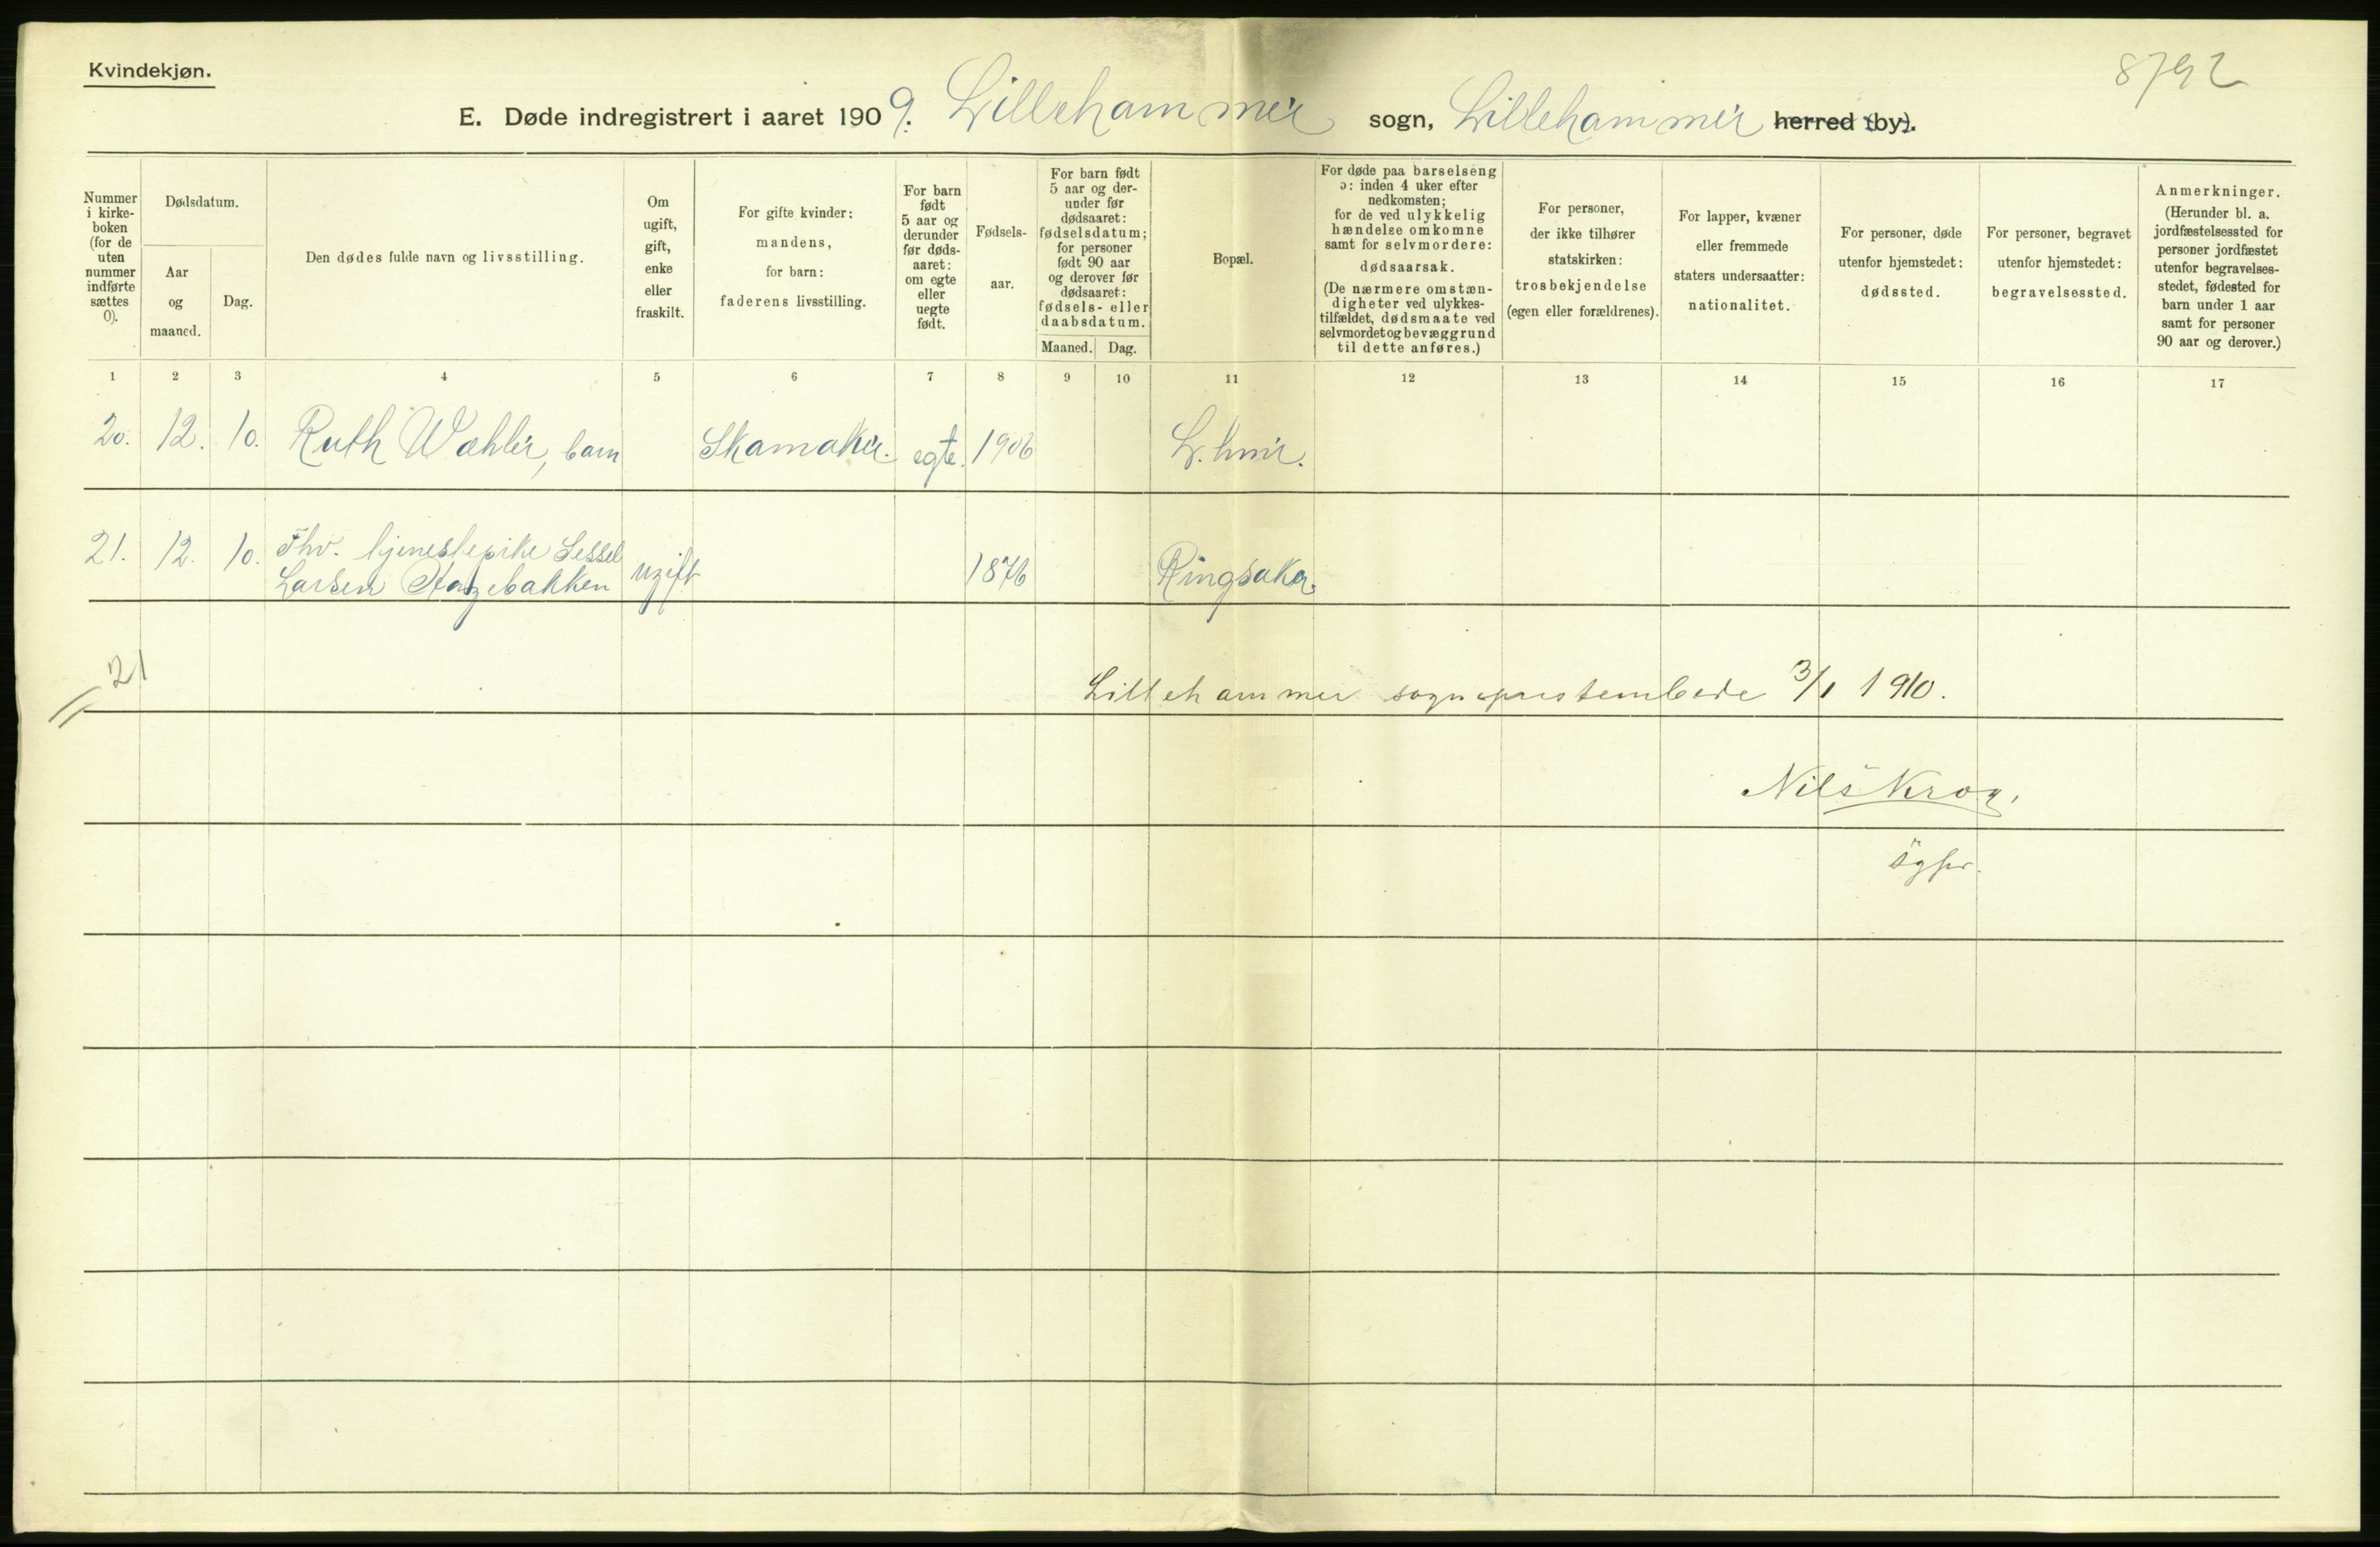 Kvindekjøn.
8792
E. Døde indregistrert i aaret 1909. Lillehammer sogn, Lillehammer herred (by).
Nummer i kirke- boken (for de uten nummer indførte sættes 0).
Dødsdatum.
Aar og maaned.
Dag.
Den dødes fulde navn og livsstilling.
Om ugift, gift, enke eller fraskilt.
For gifte kvinder: mandens, for barn: faderens livsstilling.
For barn født 5 aar og derunder før døds- aaret: om egte eller uegte født.
Fødsels- aar.
For barn født 5 aar og der- under før dødsaaret: fødselsdatum; for personer født 90 aar og derover før dødsaaret: fødsels- eller daabsdatum.
Maaned. Dag.
Bopæl.
For døde paa barselseng ɔ: inden 4 uker efter nedkomsten; for de ved ulykkelig hændelse omkomne samt for selvmordere: dødsaarsak. (De nærmere omstæn- digheter ved ulykkes- tilfældet, dødsmaate ved selvmordet og bevæggrund til dette anføres.)
For personer, der ikke tilhører statskirken: trosbekjendelse (egen eller forældrenes).
For lapper, kvæner eller fremmede staters undersaatter: nationalitet.
For personer, døde utenfor hjemstedet: dødssted.
For personer, begravet utenfor hjemstedet: begravelsessted.
Anmerkninger. (Herunder bl. a. jordfæstelsessted for personer jordfæstet utenfor begravelses- stedet, fødested for barn under 1 aar samt for personer 90 aar og derover.)
1 2 3 4 5 6 7 8 9 10 11 12 13 14 15 16 17
20. 12. 10. Ruth Wæhler, barn Skomaker. egte. 1906 L.hmr.
21. 12. 10. Fhv. tjenestepike Sessel
Larsen ugift 1876 Ringsaker.
21
Lillehammer sogneprestembede 3/1 1910.
Nils Krog,
sgpr.